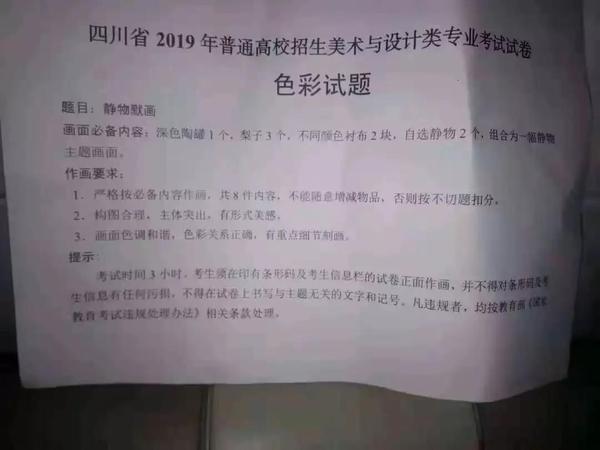 四川省 2019 年普通高校招生美术与设计类专业考试试卷
色彩试题
题目：静物默画
画面必备内容：深色陶罐 1 个，梨子 3 个，不同颜色衬布 2 块，自选静物 2 个，组合为一幅静物
主题画面。
作画要求：
1．严格按必备内容作画，共 8 件内容，不能随意增减物品，否则按不切题扣分。
2．构图合理，主体突出，有形式美感。
3．画面色调和谐，色彩关系正确，有重点细节刻画。
提示：
考试时间 3 小时。考生须在印有条形码及考生信息栏的试卷正面作画，并不得对条形码及考
生信息有任何污损，不得在试卷上书写与主题无关的文字和记号。凡违规者，均按教育部《国家
教育考试违规处理办法》相关条款处理。